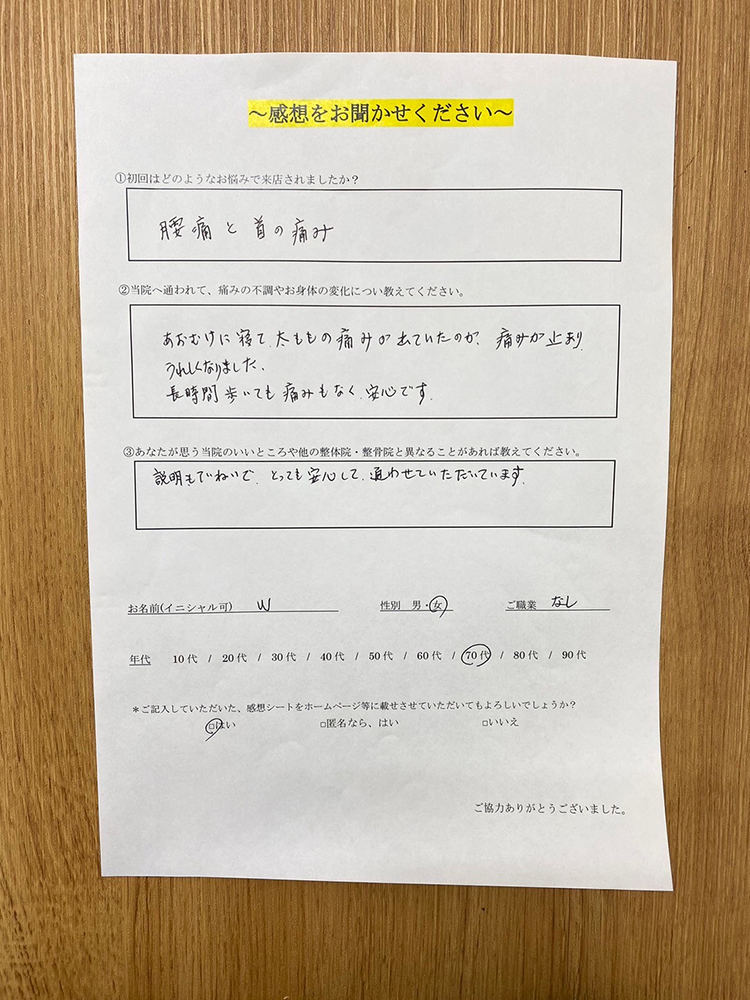 ～感想をお聞かせください～
①初回はどのようなお悩みで来店されましたか？
腰痛と首の痛み
②当院へ通われて、痛みの不調やお身体の変化につい教えてください。
あおむけに寝て、太ももの痛みが出ていたのが、痛みが止まり、
うれしくなりました。
長時間歩いても痛みもなく、安心です。
③あなたが思う当院のいいところや他の整体院・整骨院と異なることがあれば教えてください。
説明もていねいで、とっても安心して、通わせていただいています。
お名前(イニシャル可) W 性別 男・女 ご職業 なし
年代 10代 / 20代 / 30代 / 40代 / 50代 / 60代 / 70代 / 80代 / 90代
＊ご記入していただいた、感想シートをホームページ等に載せさせていただいてもよろしいでしょうか？
□はい □匿名なら、はい □いいえ
ご協力ありがとうございました。